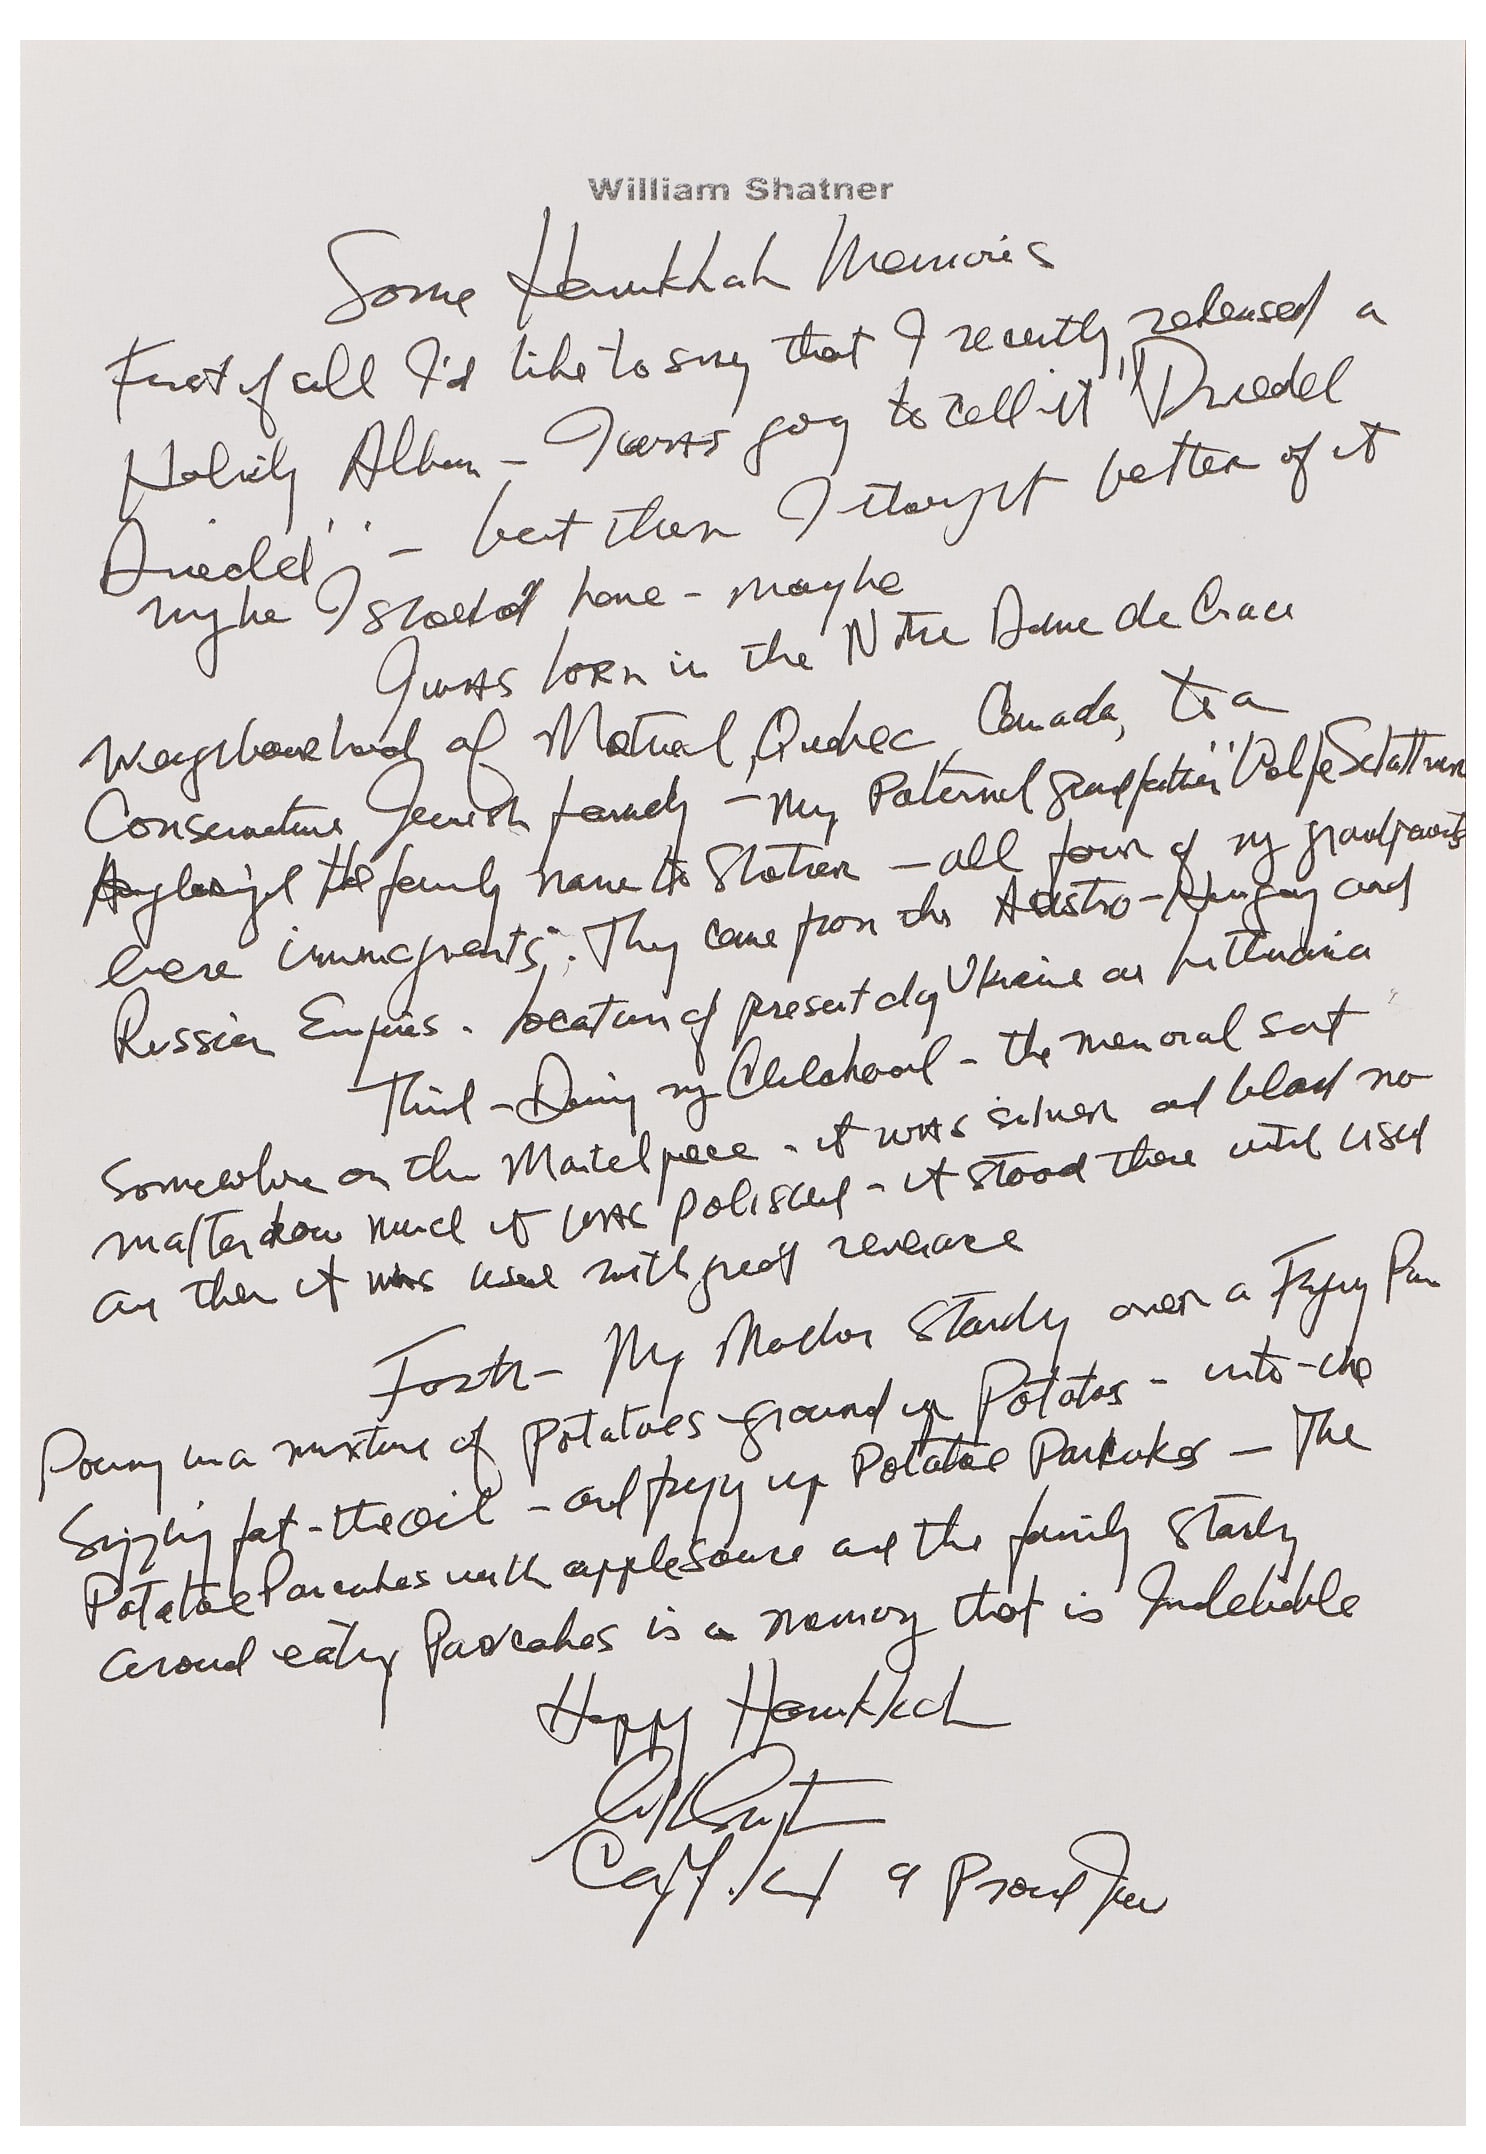 William Shatner
Some Hanukkah Memories
First of all I'd like to say that I recently released a
Holiday Album – I was going to call it "Driedel
Driedel" – but then I thought better of it
maybe I should have – maybe
I was born in the Notre Dame de Grace
Neighbourhood of Motreal, Quebec, Canada, to a
Conservative Jewish family – my Paternal grandfather "Wolfe Schattner
Anglosized the family name to Shatner – all four of my grandparents
were immigrants. They came from the Austro-Hungary and
Russian Empires. location of present day Ukraine and Lithuania
Third – During my Childhood – the menorah sat
Somewhere on the Mantelpiece – it was silver and black no
matter how much it was polished – it stood there until used
and then it was used with great reverance
Forth – My Mother Standing over a Frying Pan
Pouring in a mixture of potatoes ground up Potatos – into the
Sizzling fat – the oil – and frying up Potatoe Pancakes – The
Potatoe Pancakes with applesauce and the family Standing
around eating Pancakes is a memory that is Indelible
Happy Hanukkah
Capt. Kirk a Proud Jew